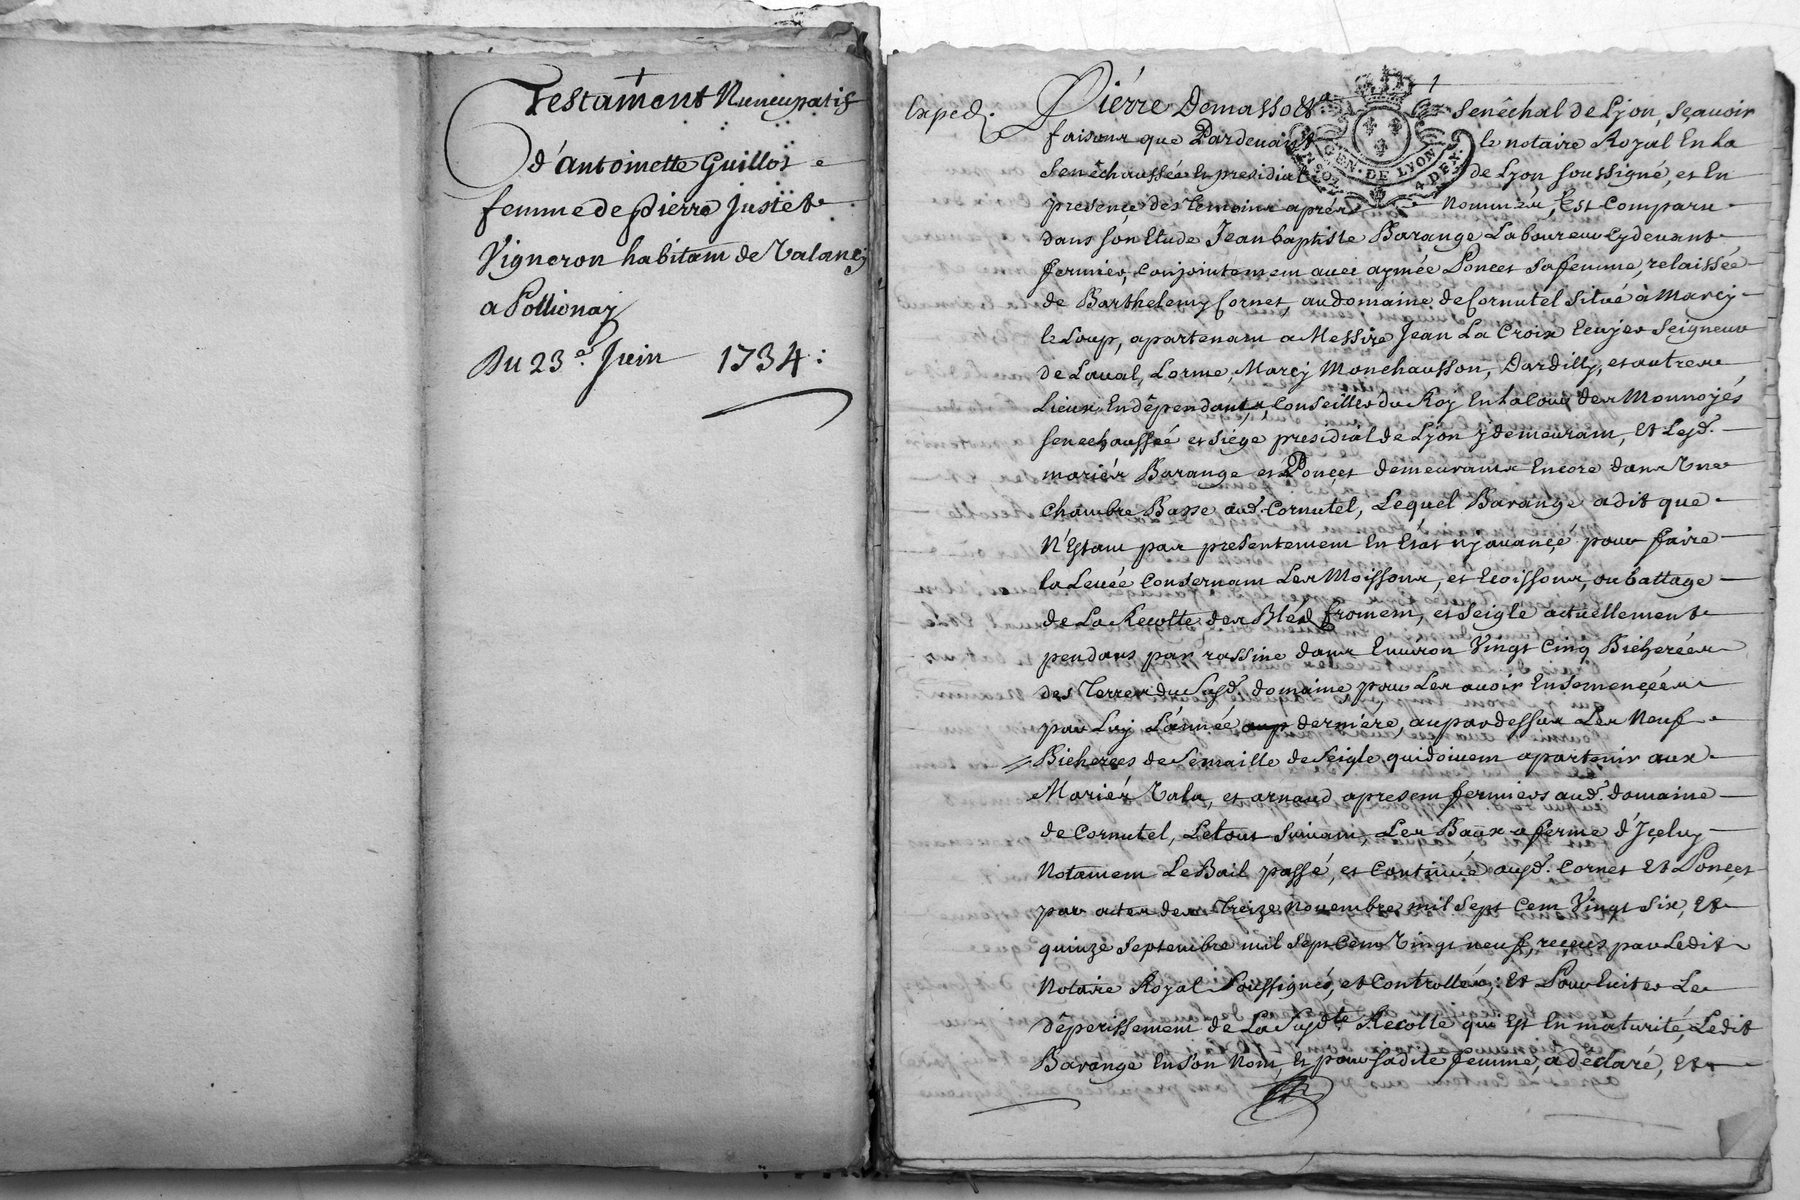 Testament Nuncupatif
d'Antoinette Guillot
femme de pierre Justet
Vigneron habitant de Valancy
a Pollionay
Du 23e. Juin 1734:
Exped.
Pierre Demassoet Senêchal de Lyon, Sçavoir
faisons que Pardevant le notaire Royal En la
Senêchaussée et presidial de Lyon soussigné, et En
presence des temoins aprés nommés, Est Comparu
dans son Etude Jean baptiste Barange Laboureur Cydevant
fermier, Conjointement avec aymée Poncet sa femme, relaissée
de Barthelemy Cornet, au domaine de Cornutel situé à Marcy
le Loup, apartenant a Messire Jean La Croix Ecuyer Seigneur
de Laval, Lorme, Marcy Monchausson, Dardilly, et autres
Lieux En dêpendants, Conseiller du Roy En la Cour des Monnoyés
senechaussée et siége presidial de Lyon y demeurant, Et Lesd.
mariés Barange et Poncet demeurants Encore dans Une
Chambre Basse aud. Cornutel, Lequel Barange a dit que
N'Estant pas presentement En état ny avancé pour faire
la Levée Concernant Les Moissons, et Ecoissons, ou battage
de La Recolte des Bléd froment, et Seigle actuellement
pendans par rassine dans Environ Vingt Cinq Bicherées
des Terres du Susd. domaine, pour Les avoir Ensemencées
par Luy L'année aup derniére, aupardessus Les Neuf
Bicherées de Semaille de Seigle qui doivent apartenir aux
Mariés Vala, et arnaud apresent fermiers aud. domaine
de Cornutel, Le tout Suivant Les Baux a ferme d'Içeluy
Notament Le Bail passé, et Continué ausd. Cornet Et Poncet
par actes des Treize Novembre mil Sept Cent Vingt Six, Et
quinze Septembre mil Sept Cent Vingt neuf, reçeus par Ledit
Notaire Royal Soussigné, et Controllés; Et Pour Eviter Le
dêperissement de La Susdte. Recolte qui Est En maturité, Ledit
Barange En Son Nom, Et pour sadite femme, a declaré, Et
GEN. DE LYON
4 DEX.